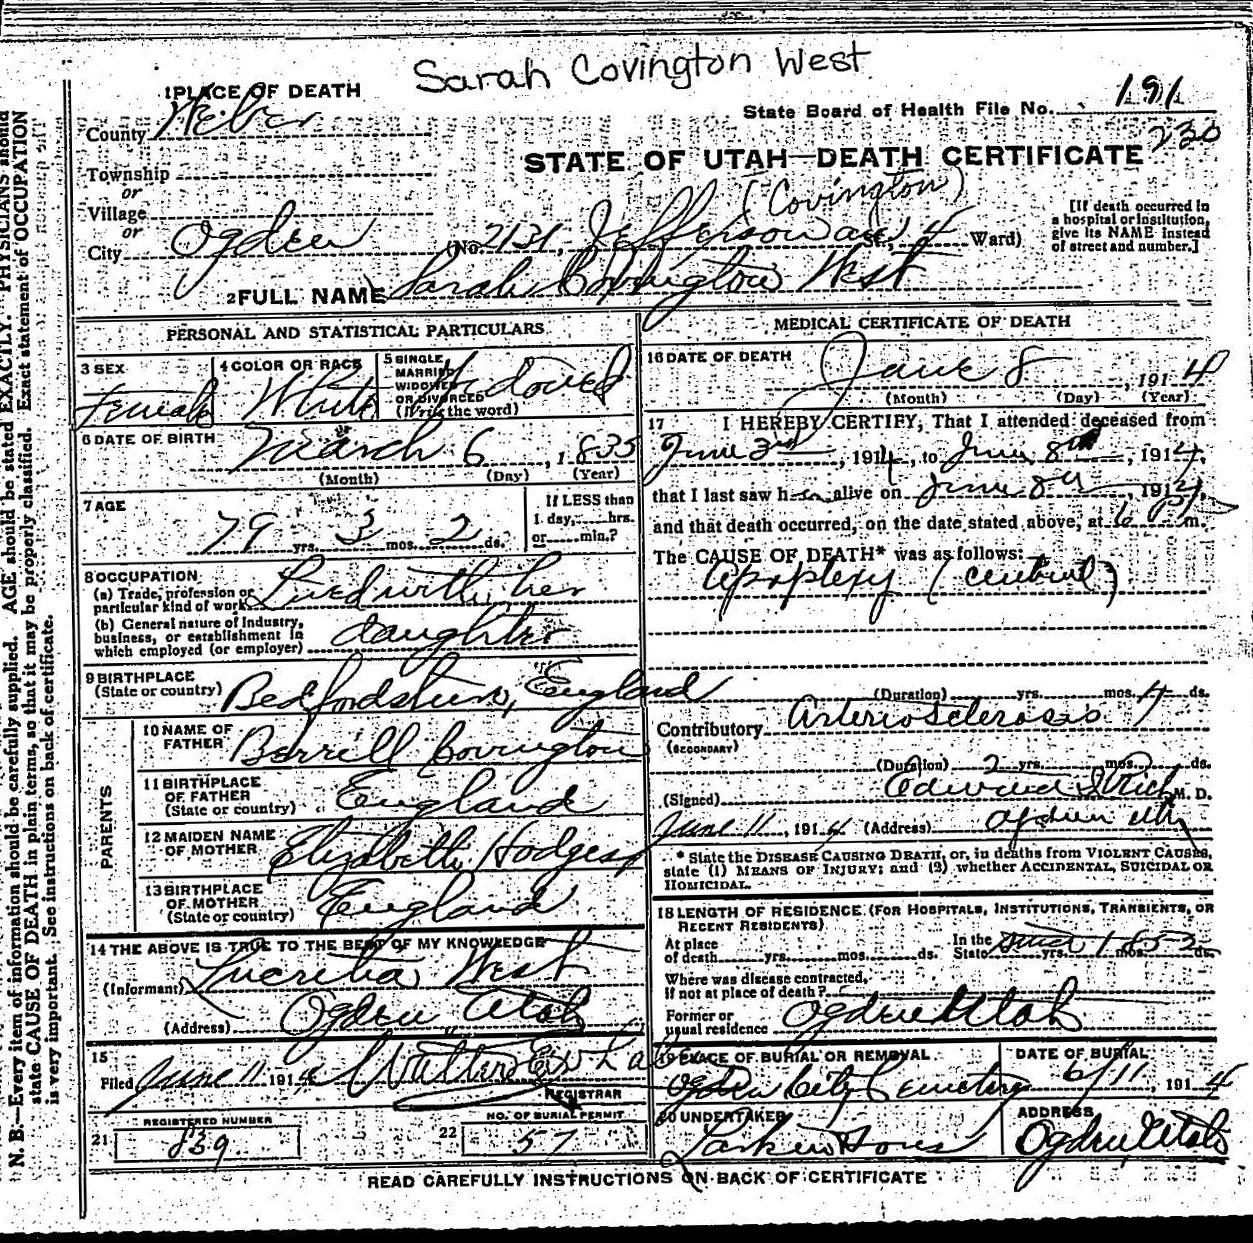 Sarah Covington West
1 PLACE OF DEATH
County Weber
State Board of Health File No. 191
230
Township
or
Village
or
City Ogden
STATE OF UTAH—DEATH CERTIFICATE
(Covington)
(No. 2131, Jefferson ave St., 4 Ward)
[If death occurred in
a hospital or institution,
give its NAME instead
of street and number.]
2 FULL NAME Sarah Covington West
PERSONAL AND STATISTICAL PARTICULARS
3 SEX
Female
4 COLOR OR RACE
White
5 SINGLE
MARRIED
WIDOWED
OR DIVORCED
(Write the word)
Widowed
6 DATE OF BIRTH
March 6, 1835
(Month) (Day) (Year)
7 AGE
79 yrs. 3 mos. 2 ds.
If LESS than
1 day,......hrs.
or......min.?
8 OCCUPATION
(a) Trade, profession or
particular kind of work Lived with her
(b) General nature of Industry,
business, or establishment in
which employed (or employer) daughter
9 BIRTHPLACE
(State or country) Bedfordshire, England
PARENTS
10 NAME OF
FATHER Berrill Covington
11 BIRTHPLACE
OF FATHER
(State or country) England
12 MAIDEN NAME
OF MOTHER Elizabeth Hodges
13 BIRTHPLACE
OF MOTHER
(State or country) England
14 THE ABOVE IS TRUE TO THE BEST OF MY KNOWLEDGE
(Informant) Lucretia West
(Address) Ogden Utah
15
Filed June 11 1914
REGISTRAR
REGISTERED NUMBER
21 839
NO. OF BURIAL PERMIT
22 57
MEDICAL CERTIFICATE OF DEATH
16 DATE OF DEATH
June 8, 1914
(Month) (Day) (Year)
17 I HEREBY CERTIFY, That I attended deceased from
June 3rd, 1914, to June 8th, 1914,
that I last saw her alive on June 8th, 1914,
and that death occurred, on the date stated above, at 6 P m.
The CAUSE OF DEATH* was as follows:
Apoplexy (cerebral)
(Duration) yrs. mos. 4 ds.
Contributory Arteriosclerosis
(SECONDARY)
(Duration) 2 yrs. mos. ds.
(Signed) Edward I Rich M. D.
June 11, 1914 (Address) Ogden Utah
* State the DISEASE CAUSING DEATH, or, in deaths from VIOLENT CAUSES,
state (1) MEANS OF INJURY; and (2) whether ACCIDENTAL, SUICIDAL OR
HOMICIDAL.
18 LENGTH OF RESIDENCE (FOR HOSPITALS, INSTITUTIONS, TRANSIENTS, OR
RECENT RESIDENTS)
At place
of death yrs. mos. ds.
In the
State since 1852 yrs. mos. ds.
Where was disease contracted,
if not at place of death?
Former or
usual residence Ogden Utah
19 PLACE OF BURIAL OR REMOVAL
Ogden City Cemetery
DATE OF BURIAL
6/11, 1914
20 UNDERTAKER
Larkin & Sons
ADDRESS
Ogden Utah
READ CAREFULLY INSTRUCTIONS ON BACK OF CERTIFICATE
N. B.—Every item of information should be carefully supplied. AGE should be stated EXACTLY. PHYSICIANS should
state CAUSE OF DEATH in plain terms, so that it may be properly classified. Exact statement of OCCUPATION
is very important. See instructions on back of certificate.